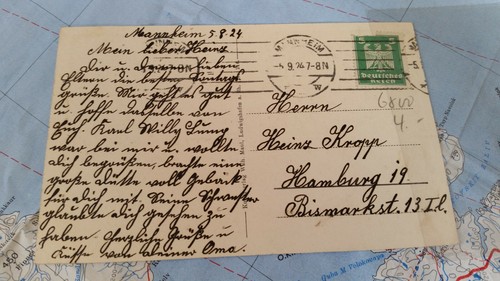 Mannheim 5.8.24
Mein lieber Heinz
Dir u. deinen lieben
Eltern die besten Sonntags
grüße. Mir geht es gut
u. hoffe dasselbe von
Euch. Karl Willy Jung
war bei mir u. wollte
Dich begrüßen, brachte eine
große Tutte voll Gebäck
für Dich mit. Seine Schwester
glaubte Dich gesehen zu
haben. Herzliche Grüße u
Küsse von deiner Oma.
MANNHEIM
5.9.24 7-8 N
W
Deutsches
Reich
Herrn
Heinz Kropp
Hamburg 19
Bismarkst. 13 II.l.
4.-
450